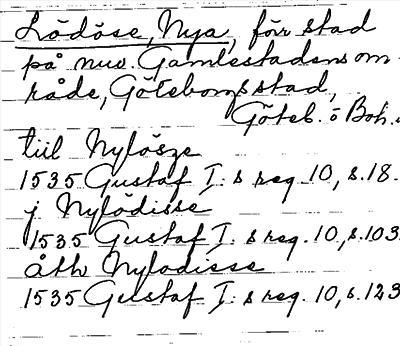 Lödöse, Nya, förr stad
på nuv. Gamlestadens om-
råde, Göteborgs stad,
Göteb. o Boh.
till Nylösze
1535 Gustaf I:s reg. 10, s. 18.
j Nylödisse
1535 Gustaf I:s reg. 10, s. 103
åth Nylodisse
1535 Gustaf I:s reg. 10, s. 123